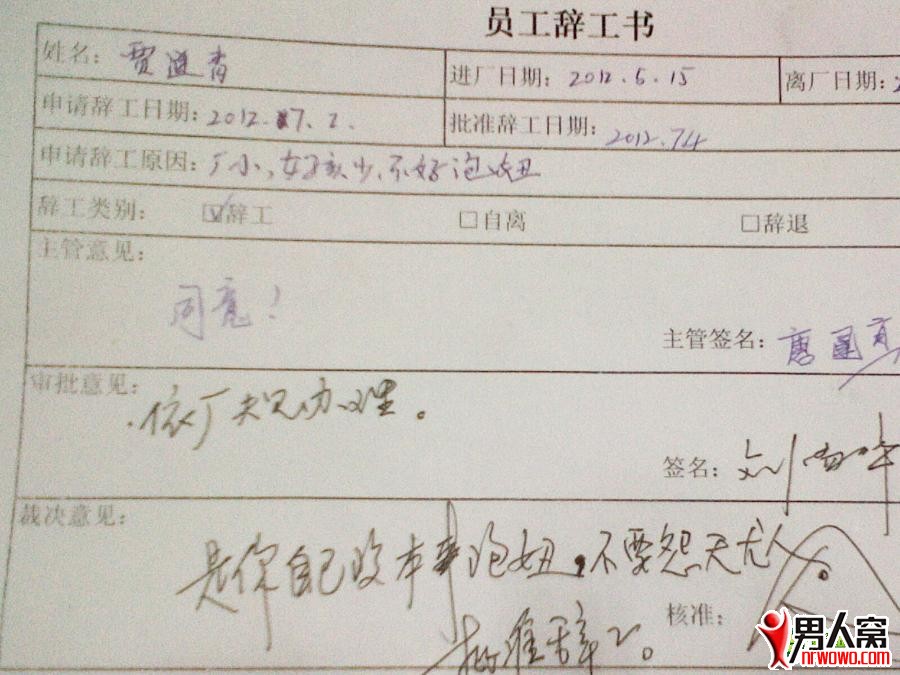 员工辞工书
姓名: 贾 青 进厂日期: 2012.6.15 离厂日期:
申请辞工日期: 2012.7.2. 批准辞工日期: 2012.7.4
申请辞工原因: 厂小,女孩少,不好泡妞
辞工类别: 辞工 自离 辞退
主管意见:
同意!
主管签名: 唐国
审批意见:
依厂规办理。
签名: 刘
裁决意见:
是你自己没本事泡妞,不要怨天尤人。
核准:
批准辞工。
男人窝
nrwowo.com